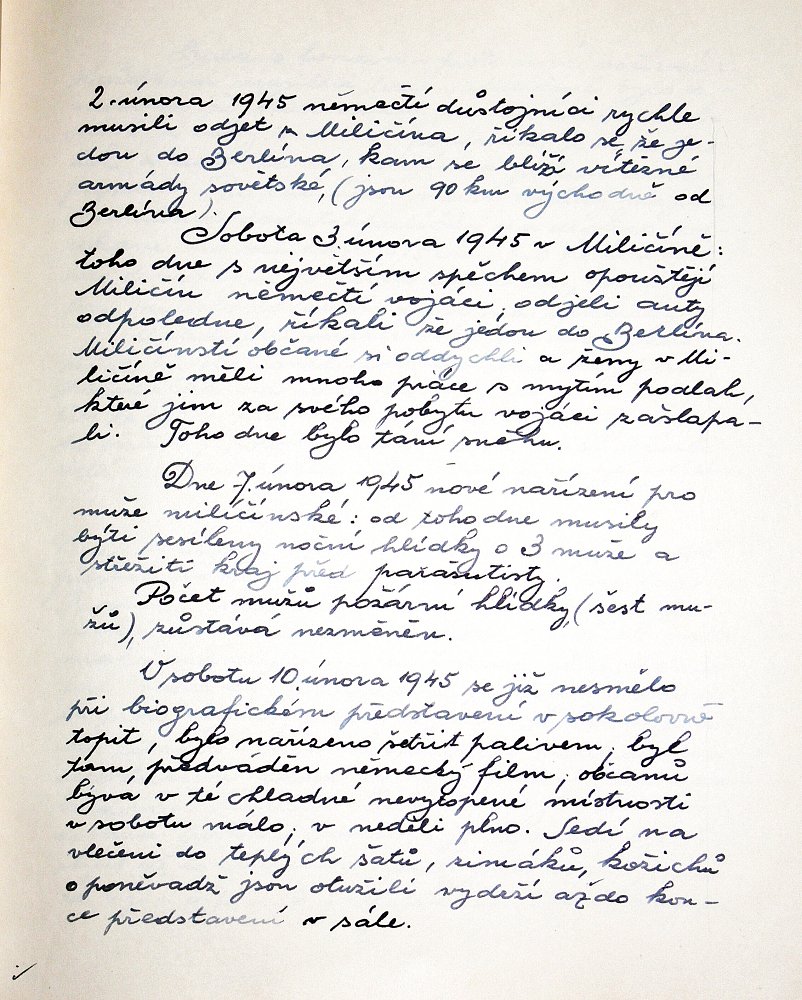 2. února 1945 němečtí důstojníci rychle
musili odjet z Miličína, říkalo se, že je-
dou do Berlína, kam se blíží vítězné
armády sovětské, (jsou 90 km východně od
Berlína).
Sobota 3. února 1945 v Miličíně:
toho dne s největším spěchem opouštějí
Miličín němečtí vojáci, odjeli auty
odpoledne, říkali že jedou do Berlína.
Miličínstí občané si oddychli a ženy v Mi-
ličíně měli mnoho práce s mytím podlah,
které jim za svého pobytu vojáci zašlapa-
li. Toho dne bylo tání sněhu.
Dne 7. února 1945 nové nařízení pro
muže miličínské: od tohodne musily
býti sesíleny noční hlídky o 3 muže a
střežiti kraj před parašutisty.
Počet mužů požární hlídky, (šest mu-
žů), zůstává nezměněn.
V sobotu 10. února 1945 se již nesmělo
při biografickém představení v sokolovně
topit, bylo nařízeno šetřit palivem, byl
tam předváděn německý film, občanů
bývá v té chladné nevytopené místnosti
v sobotu málo, v neděli plno. Sedí na
vlečeni do teplých šatů, zimáků, kožichů
a poněvadž jsou otužilí vydrží až do kon-
ce představení v sále.